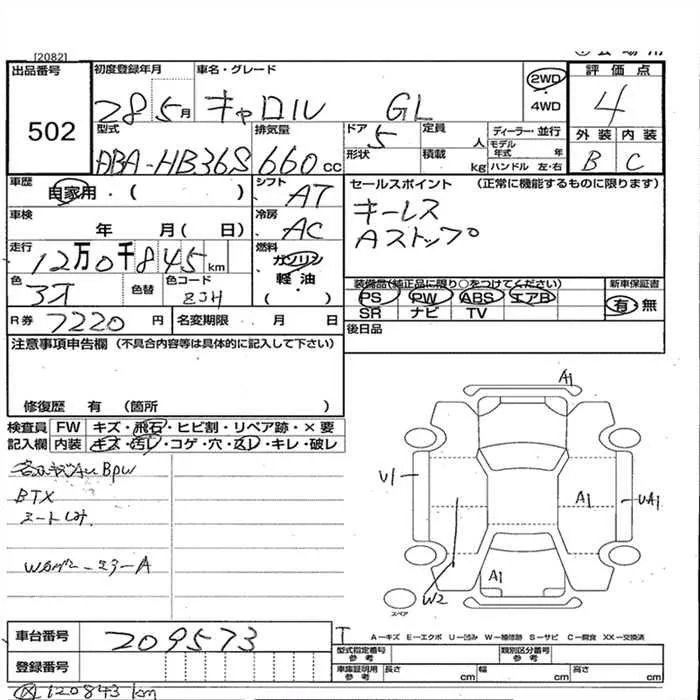 [2082]
出品番号
502
初度登録年月
28 5月
車名・グレード
キャロル GL
2WD
・
4WD
評価点
4
外装 内装
B C
型式
DBA-HB36S
排気量
660cc
ドア 5
形状
定員 人
積載 kg
ディーラー・並行
モデル年式 年
ハンドル 左・右
車歴
自家用・( )
シフト
AT
車検
年 月( 日)
冷房
AC
走行
12万0千845km
燃料
ガソリン
軽油
( )
色
色替
色コード
ZJH
R券 7220円
名変期限 月 日
セールスポイント (正常に機能するものに限ります)
キーレス
Aストップ
装備品(純正品に限り○をつけてください)
PS PW ABS エアB
SR ナビ TV
新車保証書
有・無
後日品
注意事項申告欄 (不具合内容等は具体的に記入して下さい)
修復歴 有 (箇所 )
検査員記入欄
FW キズ・飛石・ヒビ割・リペア跡・×要
内装 キズ・汚レ・コゲ・穴・凹レ・キレ・破レ
BTX
シートしみ
A1
U1
A1
UA1
A1
W2
スペア
A-キズ E-エクボ U-凹み W-補修跡 S-サビ C-腐食 XX-交換済
車台番号
209573
登録番号
型式指定番号
参考
類別区分番号
参考
車庫証明用
参考
長さ cm
幅 cm
高さ cm
120843km